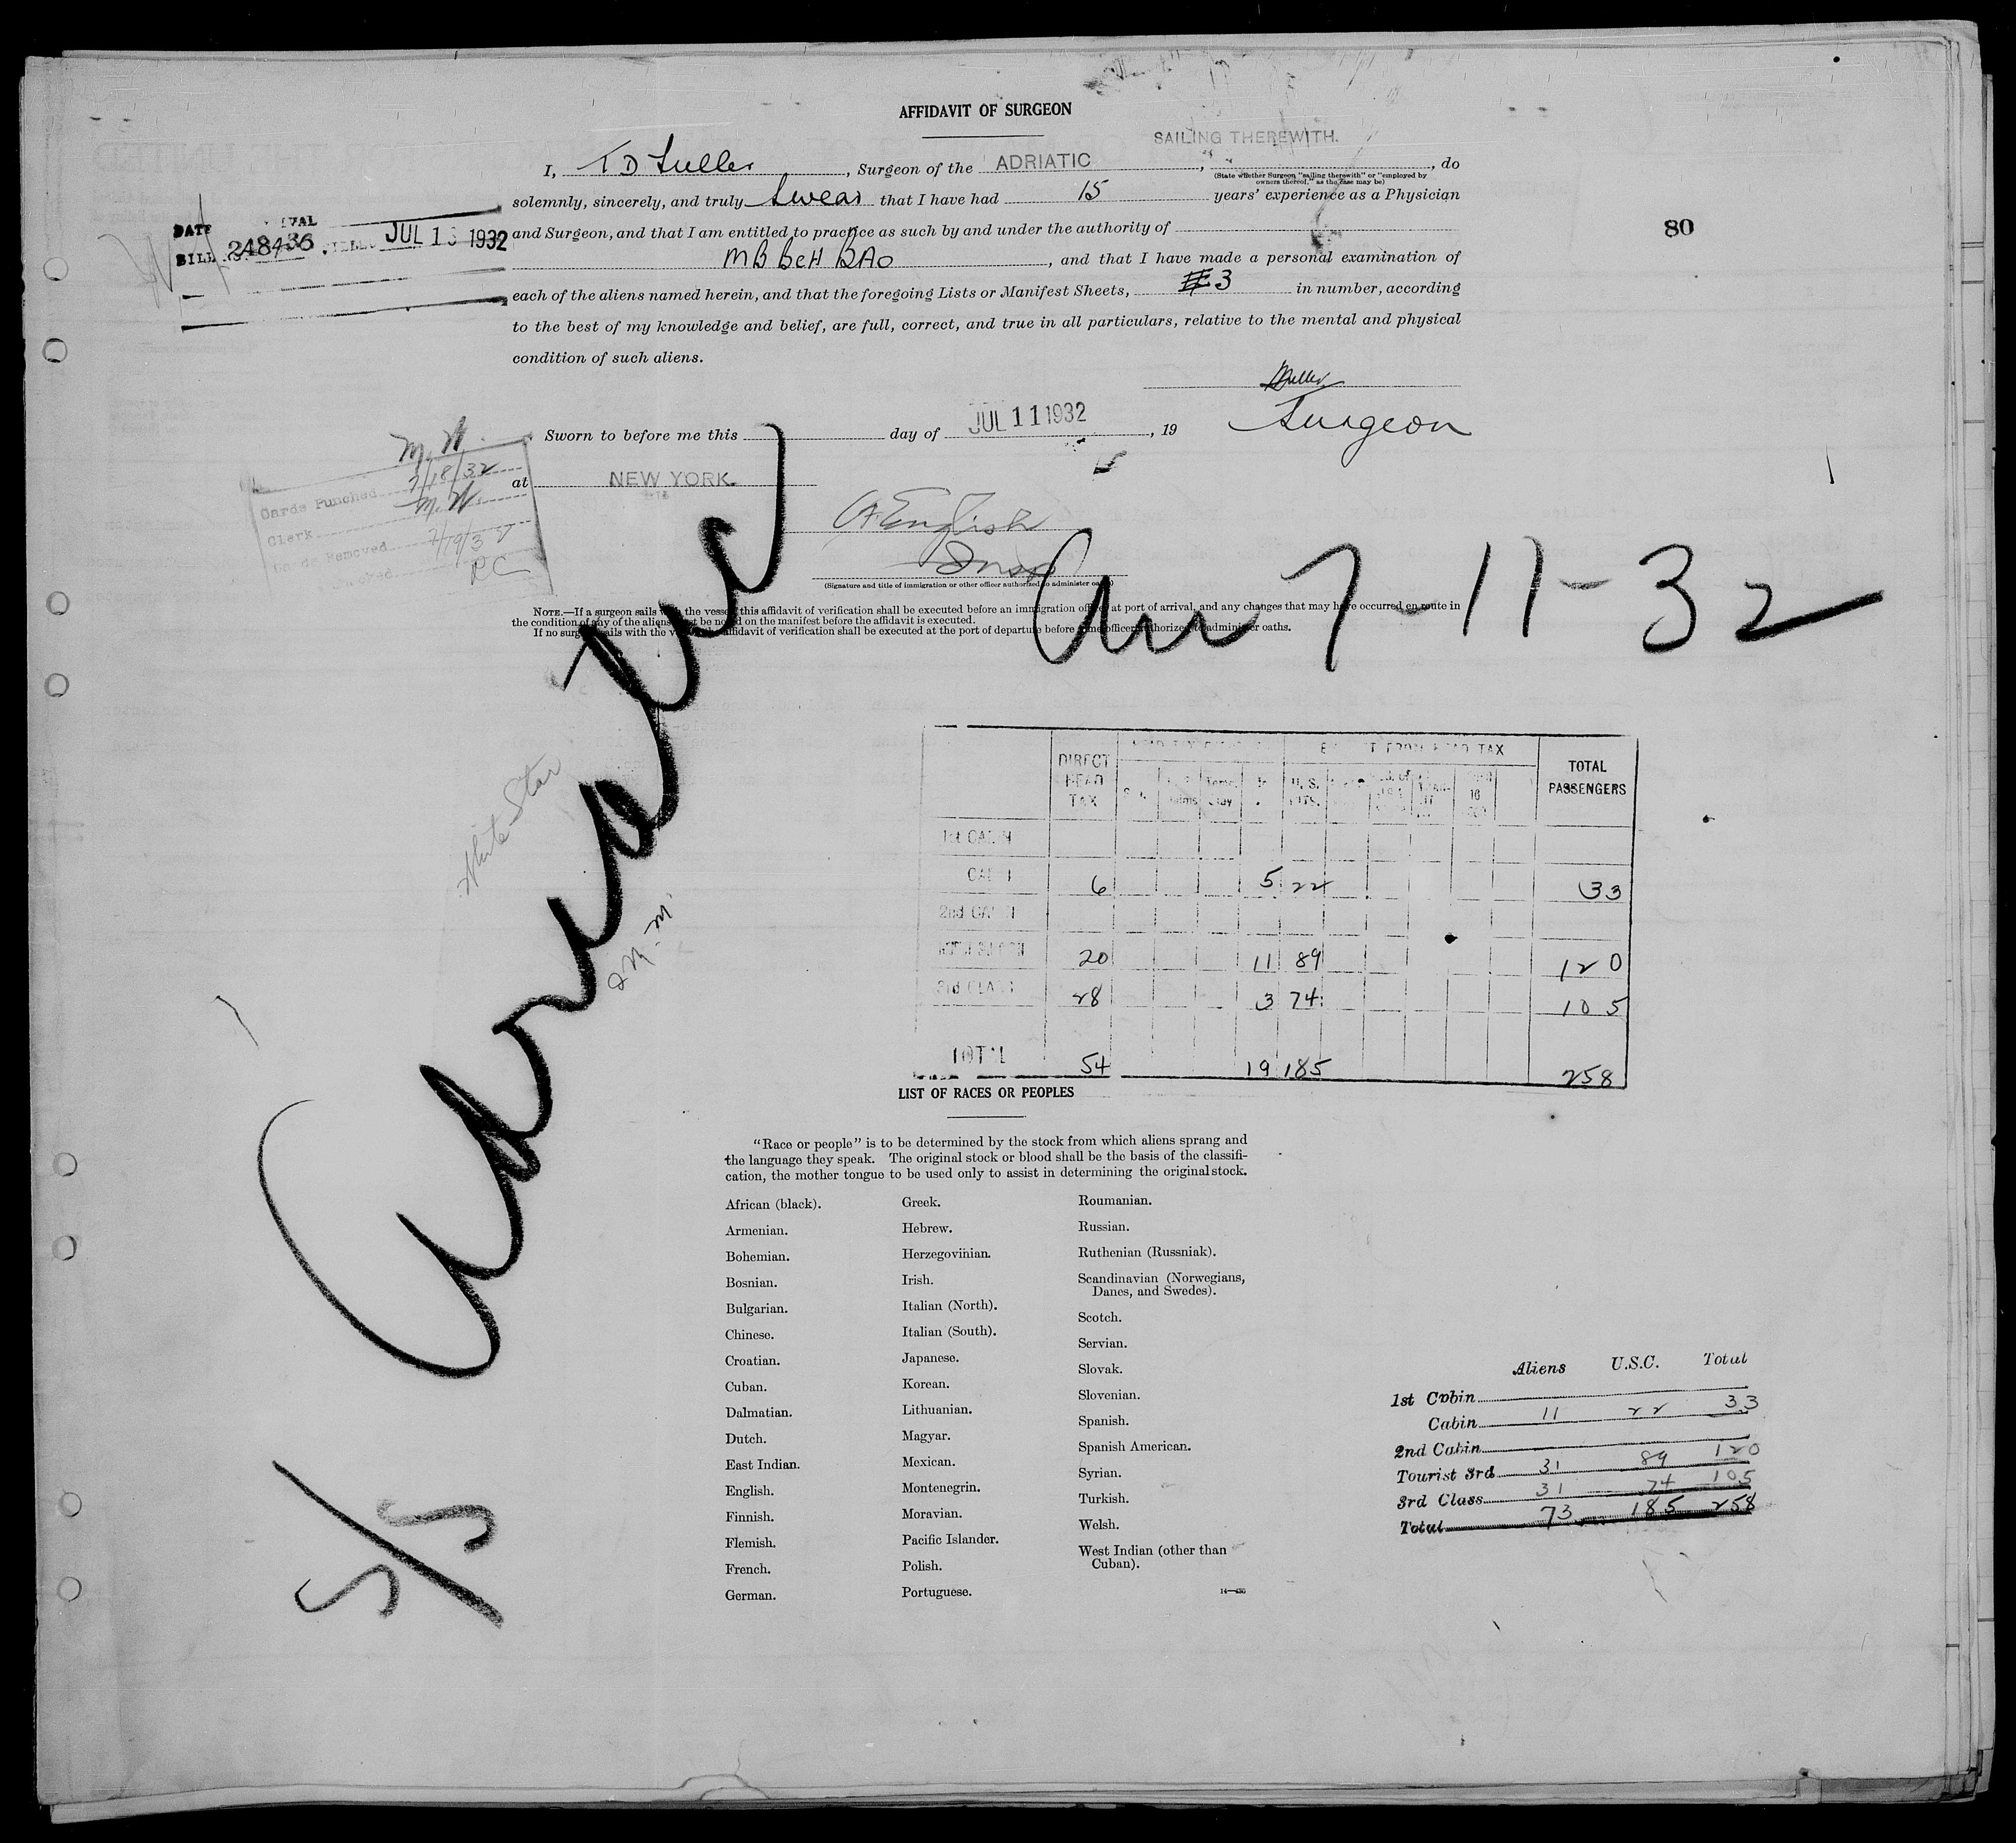 AFFIDAVIT OF SURGEON
SAILING THEREWITH.
I, T D Fuller, Surgeon of the ADRIATIC, do
(State whether Surgeon "sailing therewith" or "employed by owners thereof," as the case may be)
solemnly, sincerely, and truly swear that I have had 15 years' experience as a Physician
and Surgeon, and that I am entitled to practice as such by and under the authority of
MB BCH BAO, and that I have made a personal examination of
each of the aliens named herein, and that the foregoing Lists or Manifest Sheets, #3 in number, according
to the best of my knowledge and belief, are full, correct, and true in all particulars, relative to the mental and physical
condition of such aliens.
DATE
BILL 248436 JUL 13 1932
80
Fuller
Surgeon
Sworn to before me this day of JUL 11 1932, 19
at NEW YORK.
M.W.
Cards Punched 7/18/32
Clerk M.W.
Cards Removed 7/19/32
RC
English
Insp
(Signature and title of immigration or other officer authorized to administer oaths)
NOTE.—If a surgeon sails with the vessel, this affidavit of verification shall be executed before an immigration officer at port of arrival, and any changes that may have occurred en route in
the condition of any of the aliens must be noted on the manifest before the affidavit is executed.
If no surgeon sails with the vessel, affidavit of verification shall be executed at the port of departure before some officer authorized to administer oaths.
Arr 7-11-32
S/S Adriatic
White Star
DIRECT HEAD TAX
EXEMPT FROM HEAD TAX
TOTAL PASSENGERS
U. S.
1st CABIN
CABIN 6 5 22 33
2nd CABIN
20 11 89 120
3rd CLASS 28 3 74 105
TOTAL 54 19 185 258
LIST OF RACES OR PEOPLES
"Race or people" is to be determined by the stock from which aliens sprang and
the language they speak. The original stock or blood shall be the basis of the classifi-
cation, the mother tongue to be used only to assist in determining the original stock.
African (black).
Armenian.
Bohemian.
Bosnian.
Bulgarian.
Chinese.
Croatian.
Cuban.
Dalmatian.
Dutch.
East Indian.
English.
Finnish.
Flemish.
French.
German.
Greek.
Hebrew.
Herzegovinian.
Irish.
Italian (North).
Italian (South).
Japanese.
Korean.
Lithuanian.
Magyar.
Mexican.
Montenegrin.
Moravian.
Pacific Islander.
Polish.
Portuguese.
Roumanian.
Russian.
Ruthenian (Russniak).
Scandinavian (Norwegians,
Danes, and Swedes).
Scotch.
Servian.
Slovak.
Slovenian.
Spanish.
Spanish American.
Syrian.
Turkish.
Welsh.
West Indian (other than
Cuban).
Aliens U.S.C. Total
1st Cabin
Cabin 11 22 33
2nd Cabin
Tourist 3rd 31 89 120
3rd Class 31 74 105
Total 73 185 258